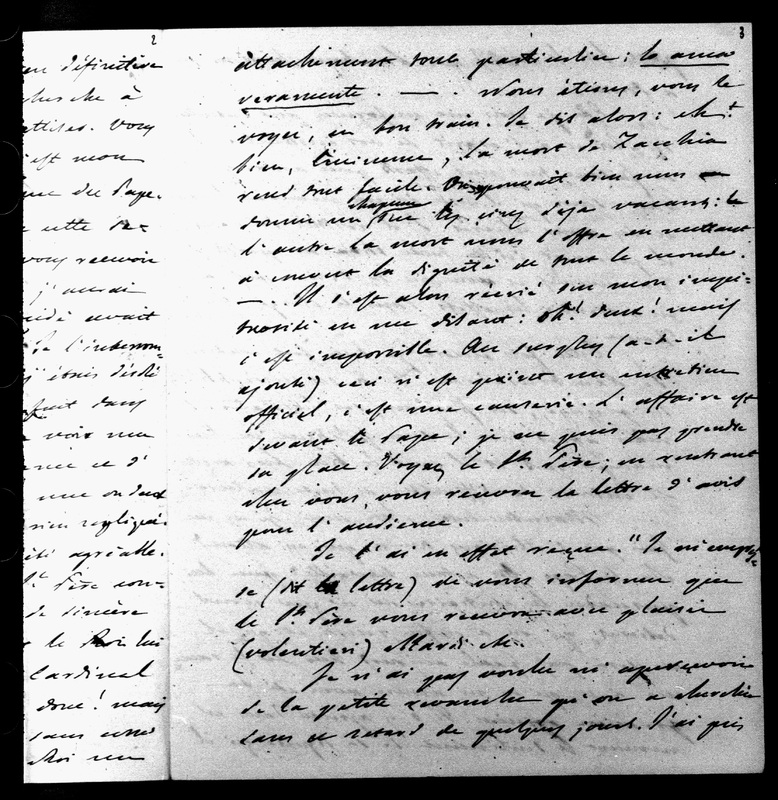 2
en définitive
cherche à
attises. Vous
c'est mon
que du Pape.
cette de-
vous recevoir
j'aurai
avait
Je l'interrom-
j'étais décidé
dans
voir une
une ou deux
rien repliqué.
agréable.
St Père con-
de sincère
le Roi lui
Cardinal
donc! mais
sans cesse
Roi une
3
attachement tout particulier; lo ama
veramente. —. Nous étions, vous le
voyez, en bon train. Je dis alors: eh!
bien, Eminence, la mort de Zacchia
rend tout facile. On pouvait bien nous
donner un chapeau sur les cinq déjà vacants: le
l'autre la mort nous l'offre en mettant
à couvert la dignité de tout le monde.
—. Il s'est alors récrié sur mon impé-
tuosité en me disant: oh! doux! mais
c'est impossible. Au surplus (a-t-il
ajouté) ceci n'est point un entretien
officiel, c'est une causerie. L'affaire est
devant le Pape; je ne puis pas prendre
sa place. Voyez le St. Père; en rentrant
chez vous, vous recevrez la lettre d'avis
pour l'audience.
Je l'ai en effet reçue. "Je m'empres-
se (dit la lettre) de vous informer que
le St Père vous recevra avec plaisir
(volentieri) Mardi etc.
Je n'ai pas voulu m'apercevoir
de la petite revanche qu'on a cherchée
dans ce retard de quelques jours. J'ai pris